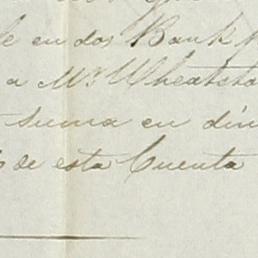 en dos Bank
a Mr. Wheatsto
suma en din
de esta Cuenta